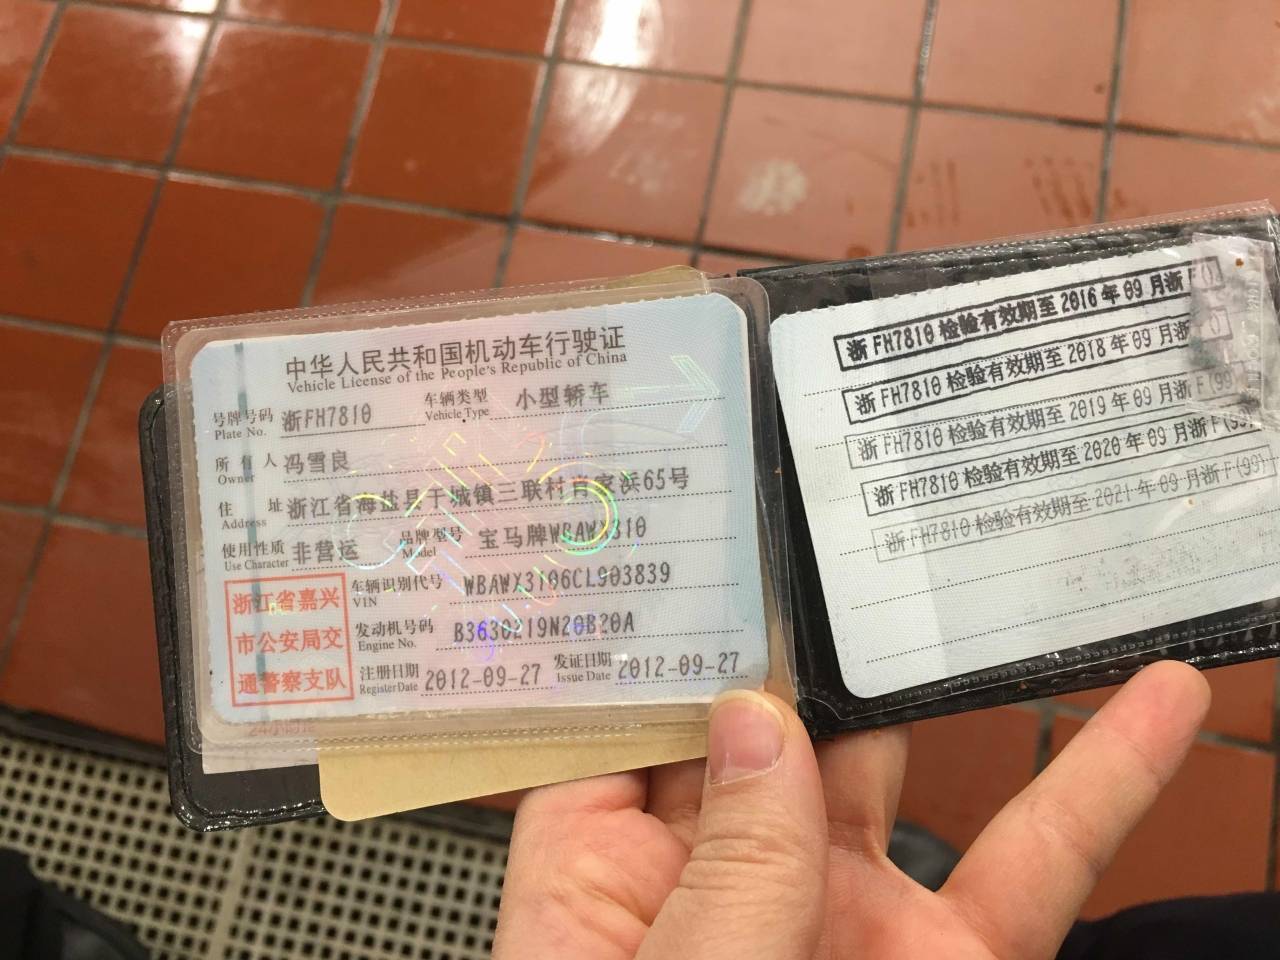 中华人民共和国机动车行驶证
Vehicle License of the People's Republic of China
号牌号码 浙FH7810 车辆类型 小型轿车
Plate No. Vehicle Type
所有人 冯雪良
Owner
住址 浙江省海盐县于城镇三联村肖家浜65号
Address
使用性质 非营运 品牌型号 宝马牌WBAWX310
Use Character Model
浙江省嘉兴
市公安局交
通警察支队
车辆识别代号 WBAWX3106CL903839
VIN
发动机号码 B3630219N20B20A
Engine No.
注册日期 2012-09-27 发证日期 2012-09-27
Register Date Issue Date
浙FH7810 检验有效期至 2016 年 09 月浙F
浙FH7810 检验有效期至 2018 年 09 月浙
浙FH7810 检验有效期至 2019 年 09 月浙F(99)
浙FH7810 检验有效期至 2020 年 09 月浙F(99)
浙FH7810 检验有效期至 2021 年 09 月浙F(99)